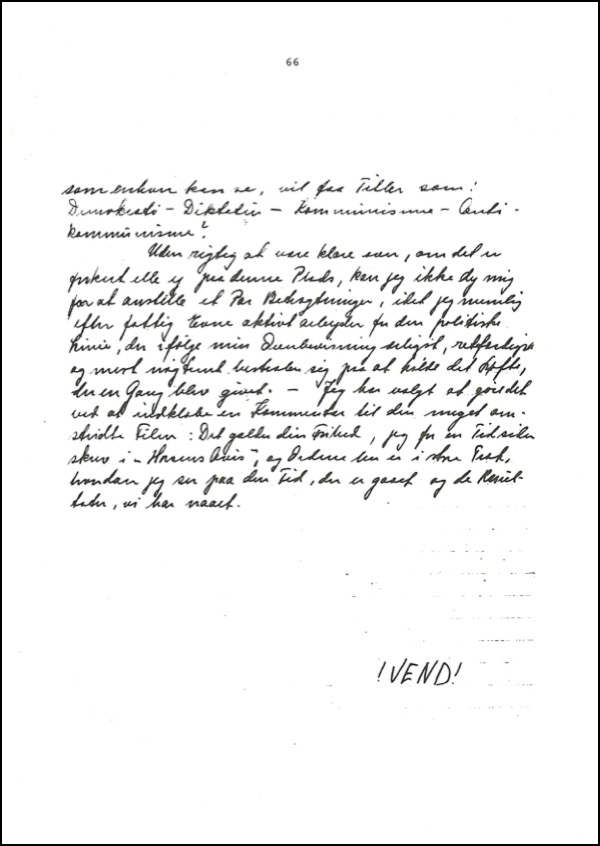 66
som enhver kan se, vil faa Titler som:
Demokrati - Diktatur - Kommunisme - Anti-
kommunisme?
Uden rigtig at være klare som, om det er
forkert elle ej paa denne Plads, kan jeg ikke dy mig
for at anstille et Par Betragtninger, idet jeg nemlig
efter fattig Evne aktivt arbejder for den politiske
Linie, der ifølge min Overbevisning religiøst, retfærdigst
og mest nøgternt bestræber sig paa at holde det Løfte,
der en Gang blev givet. - Jeg har valgt at gøre det
ved at indklæbe en Kommentar til den meget om-
stridte Film: Det gælder din Frihed, jeg for en Tid siden
skrev i "Horsens Avis", og Ordene her er i store Træk,
hvordan jeg ser paa den Tid, der er gaaet og de Resul-
tater, vi har naaet.
!VEND!